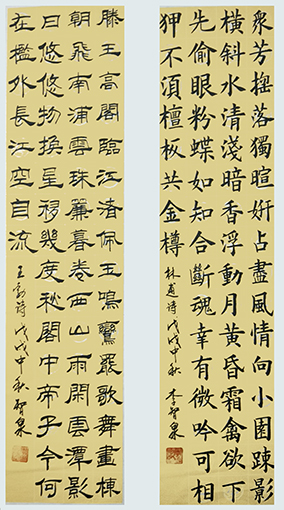 衆芳搖落獨暄妍占盡風情向小園疎影
橫斜水清淺暗香浮動月黃昏霜禽欲下
先偷眼粉蝶如知合斷魂幸有微吟可相
狎不湏檀板共金樽
林逋詩戊戌中秋 李智泉
滕王高閣臨江渚佩玉鳴鸞罷歌舞畫棟
朝飛南浦雲珠簾暮卷西山雨閑雲潭影
日悠悠物換星移幾度秋閣中帝子今何
在檻外長江空自流
王勃詩戊戌中秋 智泉